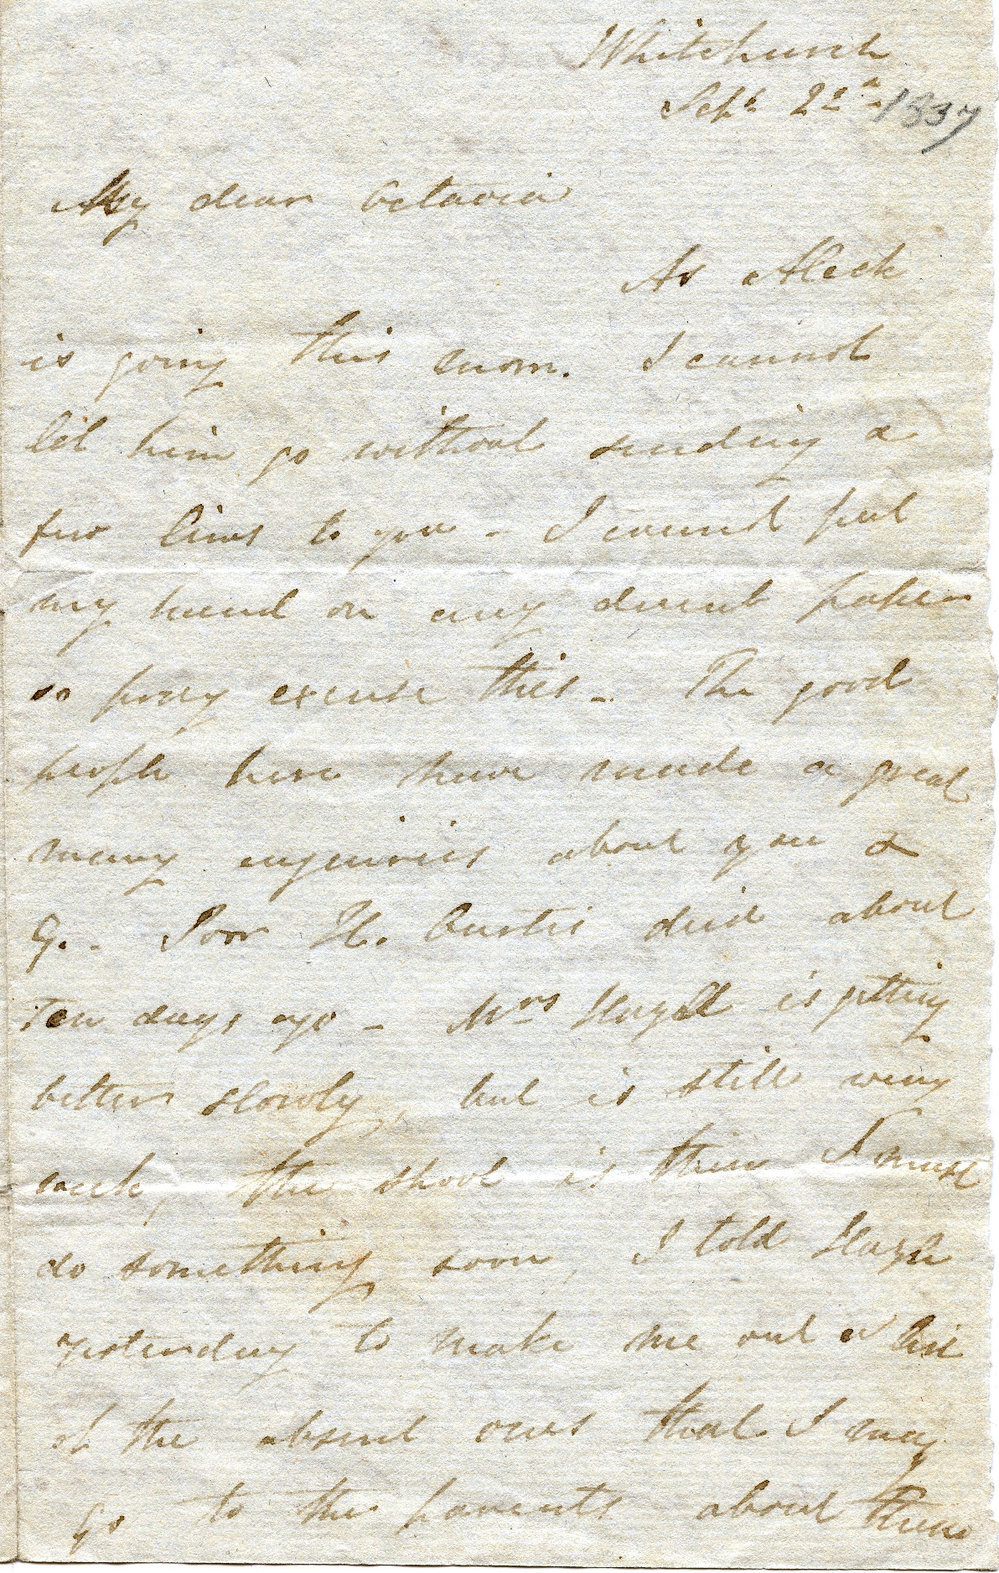 Whitchurch
Sept 22nd 1837
My dear Octavia
As Aleck
is going this morn. I cannot
let him go without sending a
few lines to you - I cannot put
my hand on any decent paper
so pray excuse this - The good
people here have made a great
many enquiries about you &
G. - Poor H. Curtis died about
Ten days ago - Mrs Hazell is getting
better slowly, but is still very
week, the shool is thin I must
do something soon, I told Hazell
yesterday to make me out a list
of the absent ones that I may
go to the parents about them